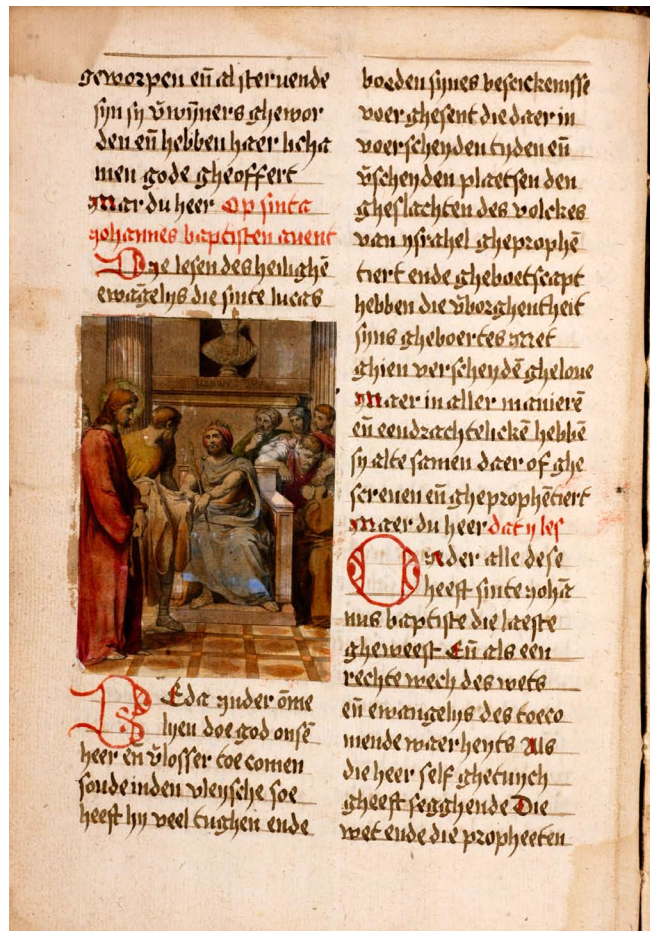 geworpen eñ al steruende
sijn sij v̄wijners ghewor
den eñ hebben haer licha
men gode gheoffert
Mar du heer Op sinta
yohannes baptisten auent
Dye lesen des heilighē
ewāgelijs die sinte lucas
BEda ynder ōme
lyen doe god onsē
heer en v̄losser toe comen
soude inden vleysche soe
heeft hij veel tughen ende
boeden sijnes beseickenisse
voer ghesent die daer in
voerscheyden tyden eñ
v̄scheyden plaetsen den
gheslachten des volckes
van ysrahel gheprophē
tiert ende gheboetscapt
hebben die v̄borghentheit
sijns gheboertes Met
ghien verscheydē gheloue
Maer in aller manierē
eñ eendrachtelickē hebbē
sij alte samen daer of ghe
screuen eñ gheprophētiert
Maer du heer dat ij les
Onder alle dese
heeft sinte yohā
nus baptiste die laeste
gheweest Eñ als een
rechte wech des wets
eñ ewangelijs des toeco
mende waerheyts Als
die heer self ghetuych
gheeft segghende Die
wet ende die propheeten